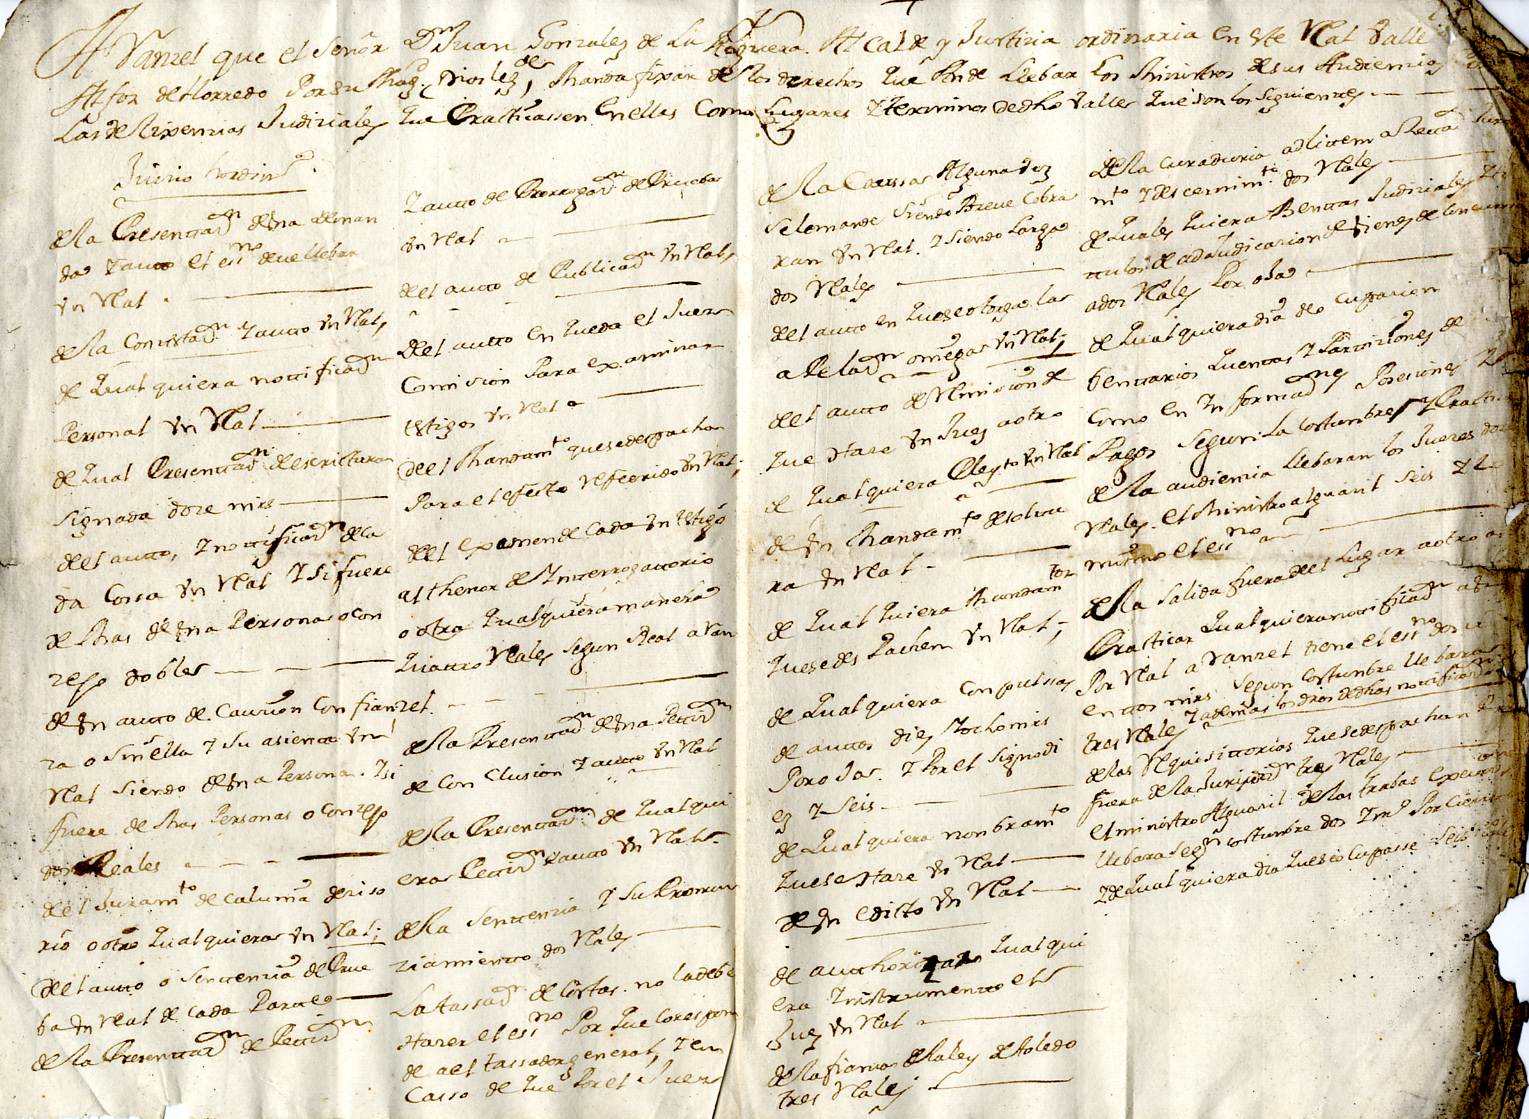 Aranzel que el Señor Dn Juan Gonzalez de la Reguera Alcalde y Justizia ordinaria en este Rl Valle
Alfoz de Lloredo Por su Magd. Dios le gde, Manda fixar de los derechos que Han de llebar los Ministros de sus Audiencias
las dilixenzias Judiziales que Practicassen en ellas Como lugares y terminos de dho Valle que son los siguientes
Juicio hordino.
de la Presenttazn de Una deman
da y autto el essno deve llebar
Un Rl
de la Contestazn y autto Un Rl,
de qual quiera nottificazn
Personal Un Rl
de qual Presenttazn de escriptura
signada doze mrs
del autto, y nottificazn de la
da Cossa Un Rl y si fuere
de Mas de Una Persona o con
zejo dobles
de Un autto de Cauzion Con fian
za o sin ella y su asiento Un
Rl siendo de Una Persona. y si
fuere de Mas Personas o Conzejo
dos Reales
del Juramto de calumnia deziso
rio o otro qualquiera Un Rl;
del autto o senttenzia de Prue
ba Un Rl de cada Parte
de la Presenttazn de Pettizn
y autto de Prorrogazn de Pruebas
Un Rl
del autto de Publicazn Un Rl,
del autto en que da el Juez
Comision Para exsaminar
testigos Un Rl
del Mandamto que se despacha
Para el efecto referido Un Rl;
del exsamen de Cada Un testigo
al thenor del Ynterrogattorio
o otra qualquiera manera
quattro Reales segun Real aran
zel.
de la Presenttazn de Una Pettizn
de Con Clusion y autto Un Rl
de la Presenttazn de qualqui
era Pettizn y autto Un Rl.
de la Senttenzia y su Pronun
ziamientto dos Reales
La tassazn de Costas no la debe
Hazer el essno Por que Corespon
de a el tassador general, y en
Casso de que Por el Juez
de la Caussa Alguna vez
se le mande siendo Breve Cobra
ran Un Rl. y siendo Larga
dos Reales
del autto en que se otorga las
apelazn o niega Un Rl;
del autto de Remision de
que Haze Un Juez a otro
de qualquiera Pleyto Un Rl
de Un Mandamto de soltu
ra Un Rl
de qual quiera Mandamtos
que se des Pachen Un Rl;
de qualquiera Conpulsas
de auttos diez y ocho mrs
Por oJas. y Por el Signo di
ez y Seis
de qualquiera nonbramto
que se Haze Un Rl
de Un edicto Un Rl
de authorizar qualqui
era Ynstrumentto el
Juez Un Rl
de la fianza de la ley de toledo
tres Reales
de la Curaduria ad litem azettazn Jura
mto y dezcernimto dos Reales
de quales quiera Benttas Judiziales
ttulos de adJudicazion de Bienes de
ados Reales Por oJa
de qualquiera dia de o cupazion
benttarios quenttas y Parttiziones de
Como en Yn formaznes Posesiones
Pagos segun la Costumbre y Practica
de la audienzia llebaran los Juezes doze
Reales. el Ministro alguazil seis y lo
mismo el essno
de la salida fuera del lugar a otro a
Practicar qualquiera nottificazn
Por Rl aranzel tiene el essno
en ttos mrs segun Costumbre llebara
tres Reales y ademas los dros de dhas notificaznes
de las Requisittorias que se despachan
fuera de la Jurisdizn tres Reales
el ministro Alguazil de las trabas
llebara segun costumbre dos Rs
y de qual quiera dia que se o cupasse seis